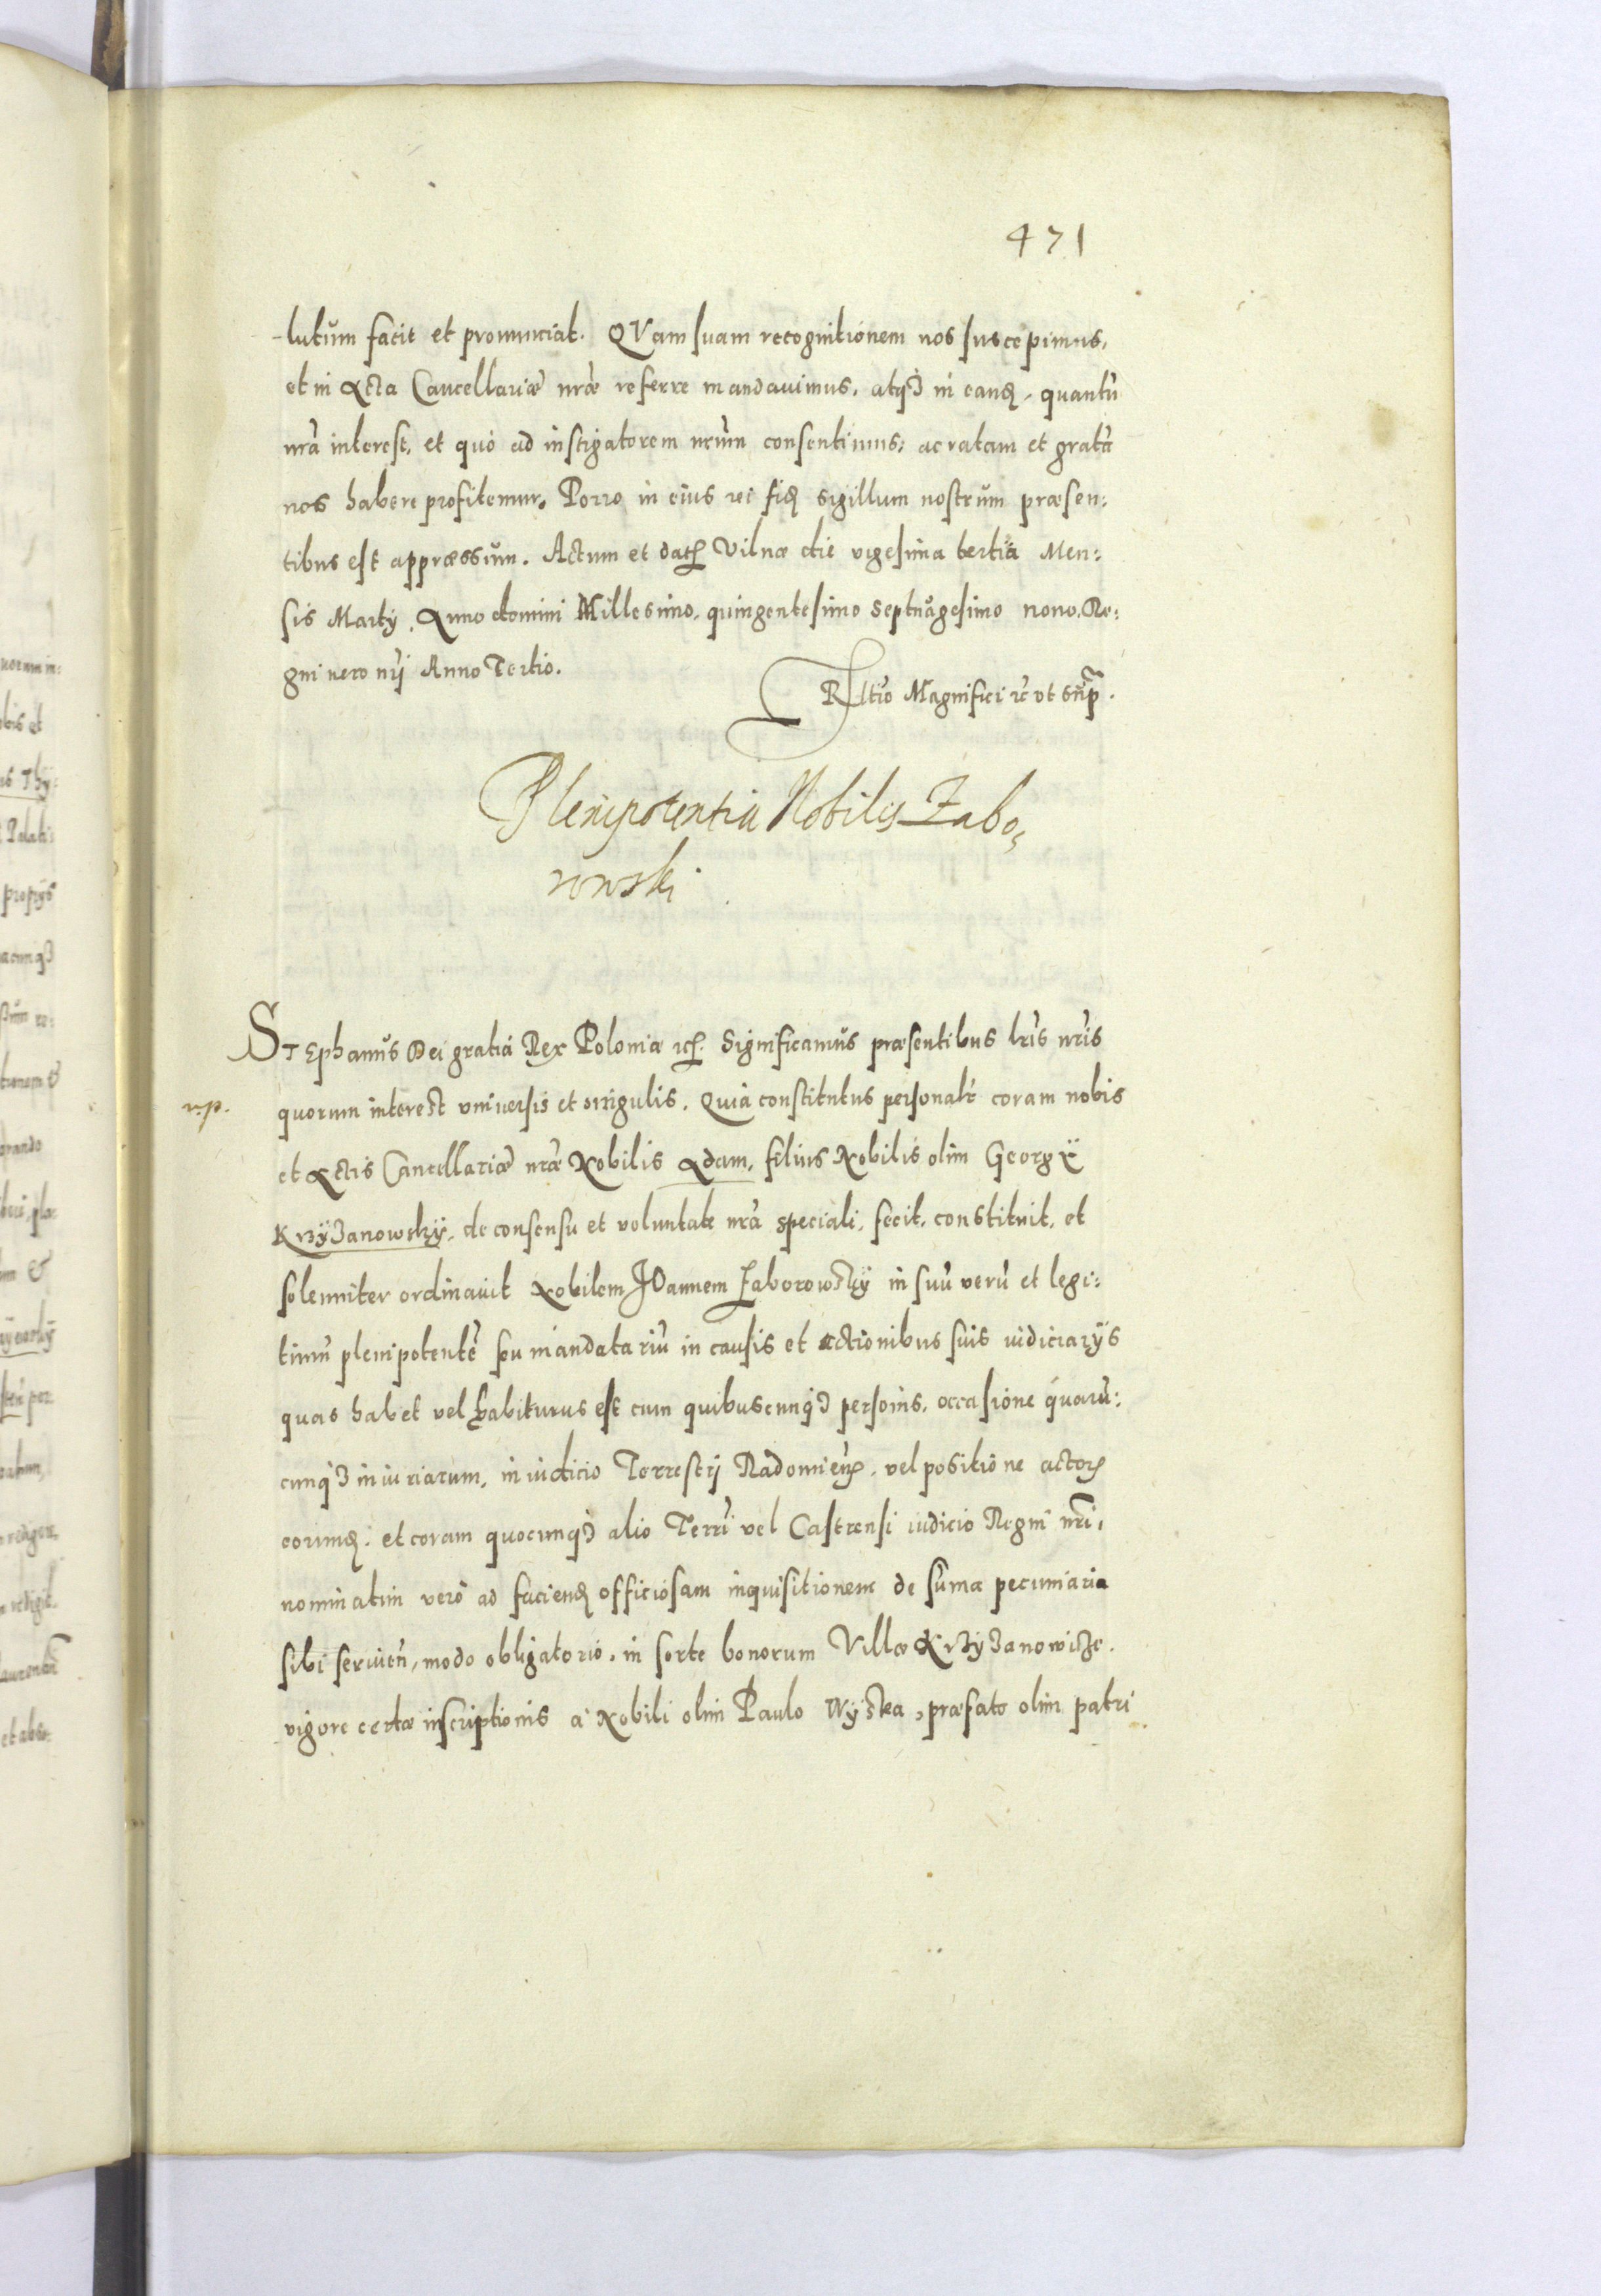 471
-lutum facit et pronunciat. QVam suam recognitionem nos suscepimus,
et in Acta Cancellariæ nr̃æ referre mandauimus, atq3 in eand., quantũ
nr̃a interest, et quò ad instigatorem nr̃um consentimus; ac ratam et gratã
nos habere profitemur. Porro in eius rei fid. sigillum nostrum præsen:
tibus est appressum. Actum et dat. Vilnæ die vigesima tertia Men:
sis Martÿ, Anno domini Millesimo, quingentesimo septuagesimo nono, Re:
gni uero nr̃i Anno Tertio.
Rl̃tio Magnifici rc̃ vt supr̃.
Plenipotentia Nobilis Zabo,
rowski
STEphanus Dei gratia Rex Poloniæ rc̃. Significamus præsentibus lr̃is nr̃is
r.p.
quorum interest vniuersis et singulis. Quia constitutus personalr̃ coram nobis
et Actis Cancellariæ nr̃æ Nobilis Adam, filius Nobilis olim Georgÿ
Krzÿzanowskÿ, de consensu et voluntate nr̃a speciali, fecit, constituit, et
solenniter ordinauit Nobilem IOannem Zaborowskÿ in suũ verũ et legi:
timũ plenipotentẽ seu mandatariũ in causis et actionibus suis iudiciarÿs
quas habet vel habiturus est cum quibuscunq3 personis, occasione quarũ:
cunq3 iniuriarum, in iudicio Terrestrj Radomien., vel positione actor.
eorund. et coram quocunq3 alio Terrĩ vel Castrensi iudicio Regni nr̃i,
nominatim verò ad faciend. officiosam inquisitionem de suma pecuniaria
sibi seruien̄, modo obligatorio, in sorte bonorum Villæ Krzÿzanowicze,
vigore certæ inscriptionis à Nobili olim Paulo Wÿska, præfato olim patri